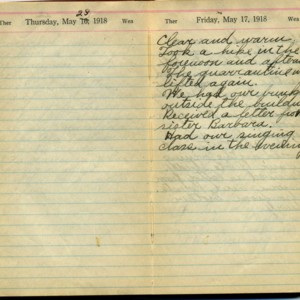 28
Ther Thursday, May 16, 1918 Wea
Ther Friday, May 17, 1918 Wea
Clear and warm
Took a hike in the
forenoon and
The quarrantine
lifted again.
We had our bunks
outside the
Received a letter
sister Barbara.
Had our singing
class in the evening